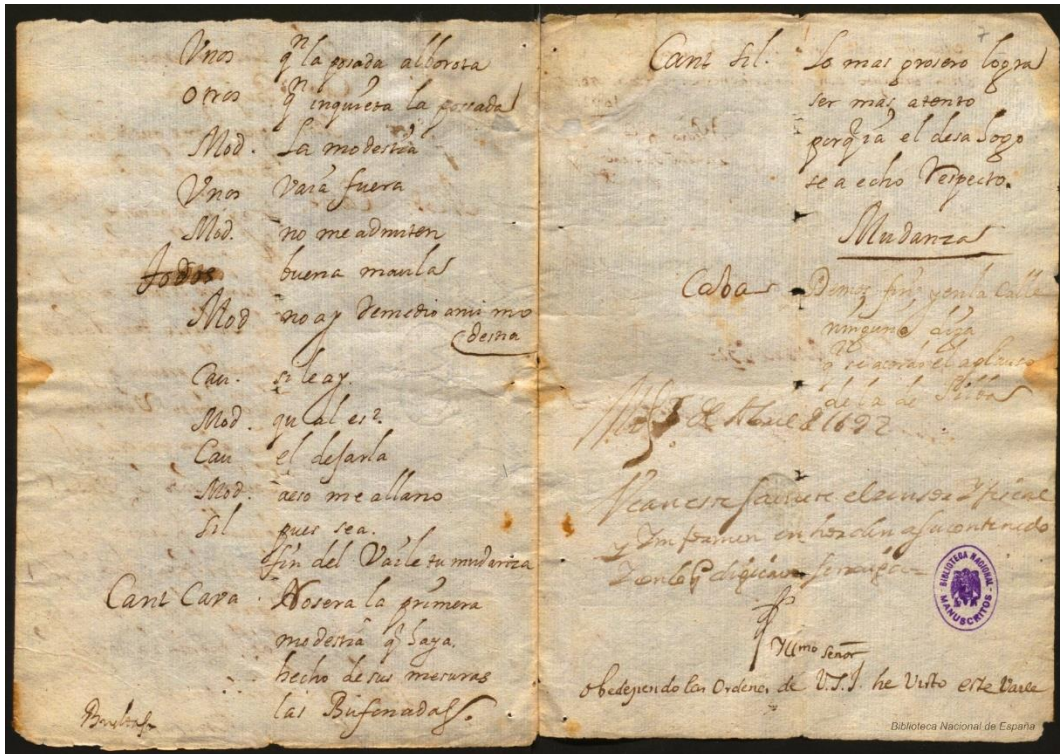 Unos qn la posada alborota
otros qn inquieta la possada
Mod. La modestia
Unos vaia fuera
Mod. no me admiten
todos buena maula
Mod no ay Remedio a mi mo
destia
Cau. si le ay.
Mod. qual es?
Cau el dejarla
Mod. a eso me allano
Sil pues sea.
fin del Vaile tu mudanza
Cant Cava. No sera la primera
modestia q haya.
hecho de sus mesuras
las Bufonadas.
Bueltas
7
Cant sil. Lo mas grosero logra
ser mas atento
porq ia el desahogo
se a echo Respecto.
Mudanza
Caba Demos fin y en la Calle
ninguno diga
qn
de la de
5 de Abril de 1692
Vean este el censor y fiscal
y Informen en horden a su contenido
Yllmo Señor
obedeciendo las Ordenes de V.S.I. he Visto este Vaile
BIBLIOTECA NACIONAL
MANUSCRITOS
Biblioteca Nacional de España